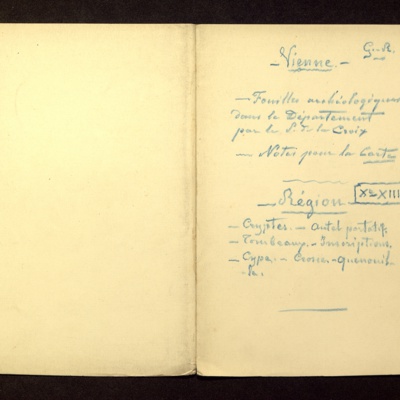 G.R.
— Vienne —
— Fouilles archéologiques
dans le Département
par le
de la Croix
— Notes pour la Carte
— Région —
Xe-XIII
— Cryptes. — Autel portatif.
— Tombeaux. — Inscriptions.
— Crosse-Quenouil-